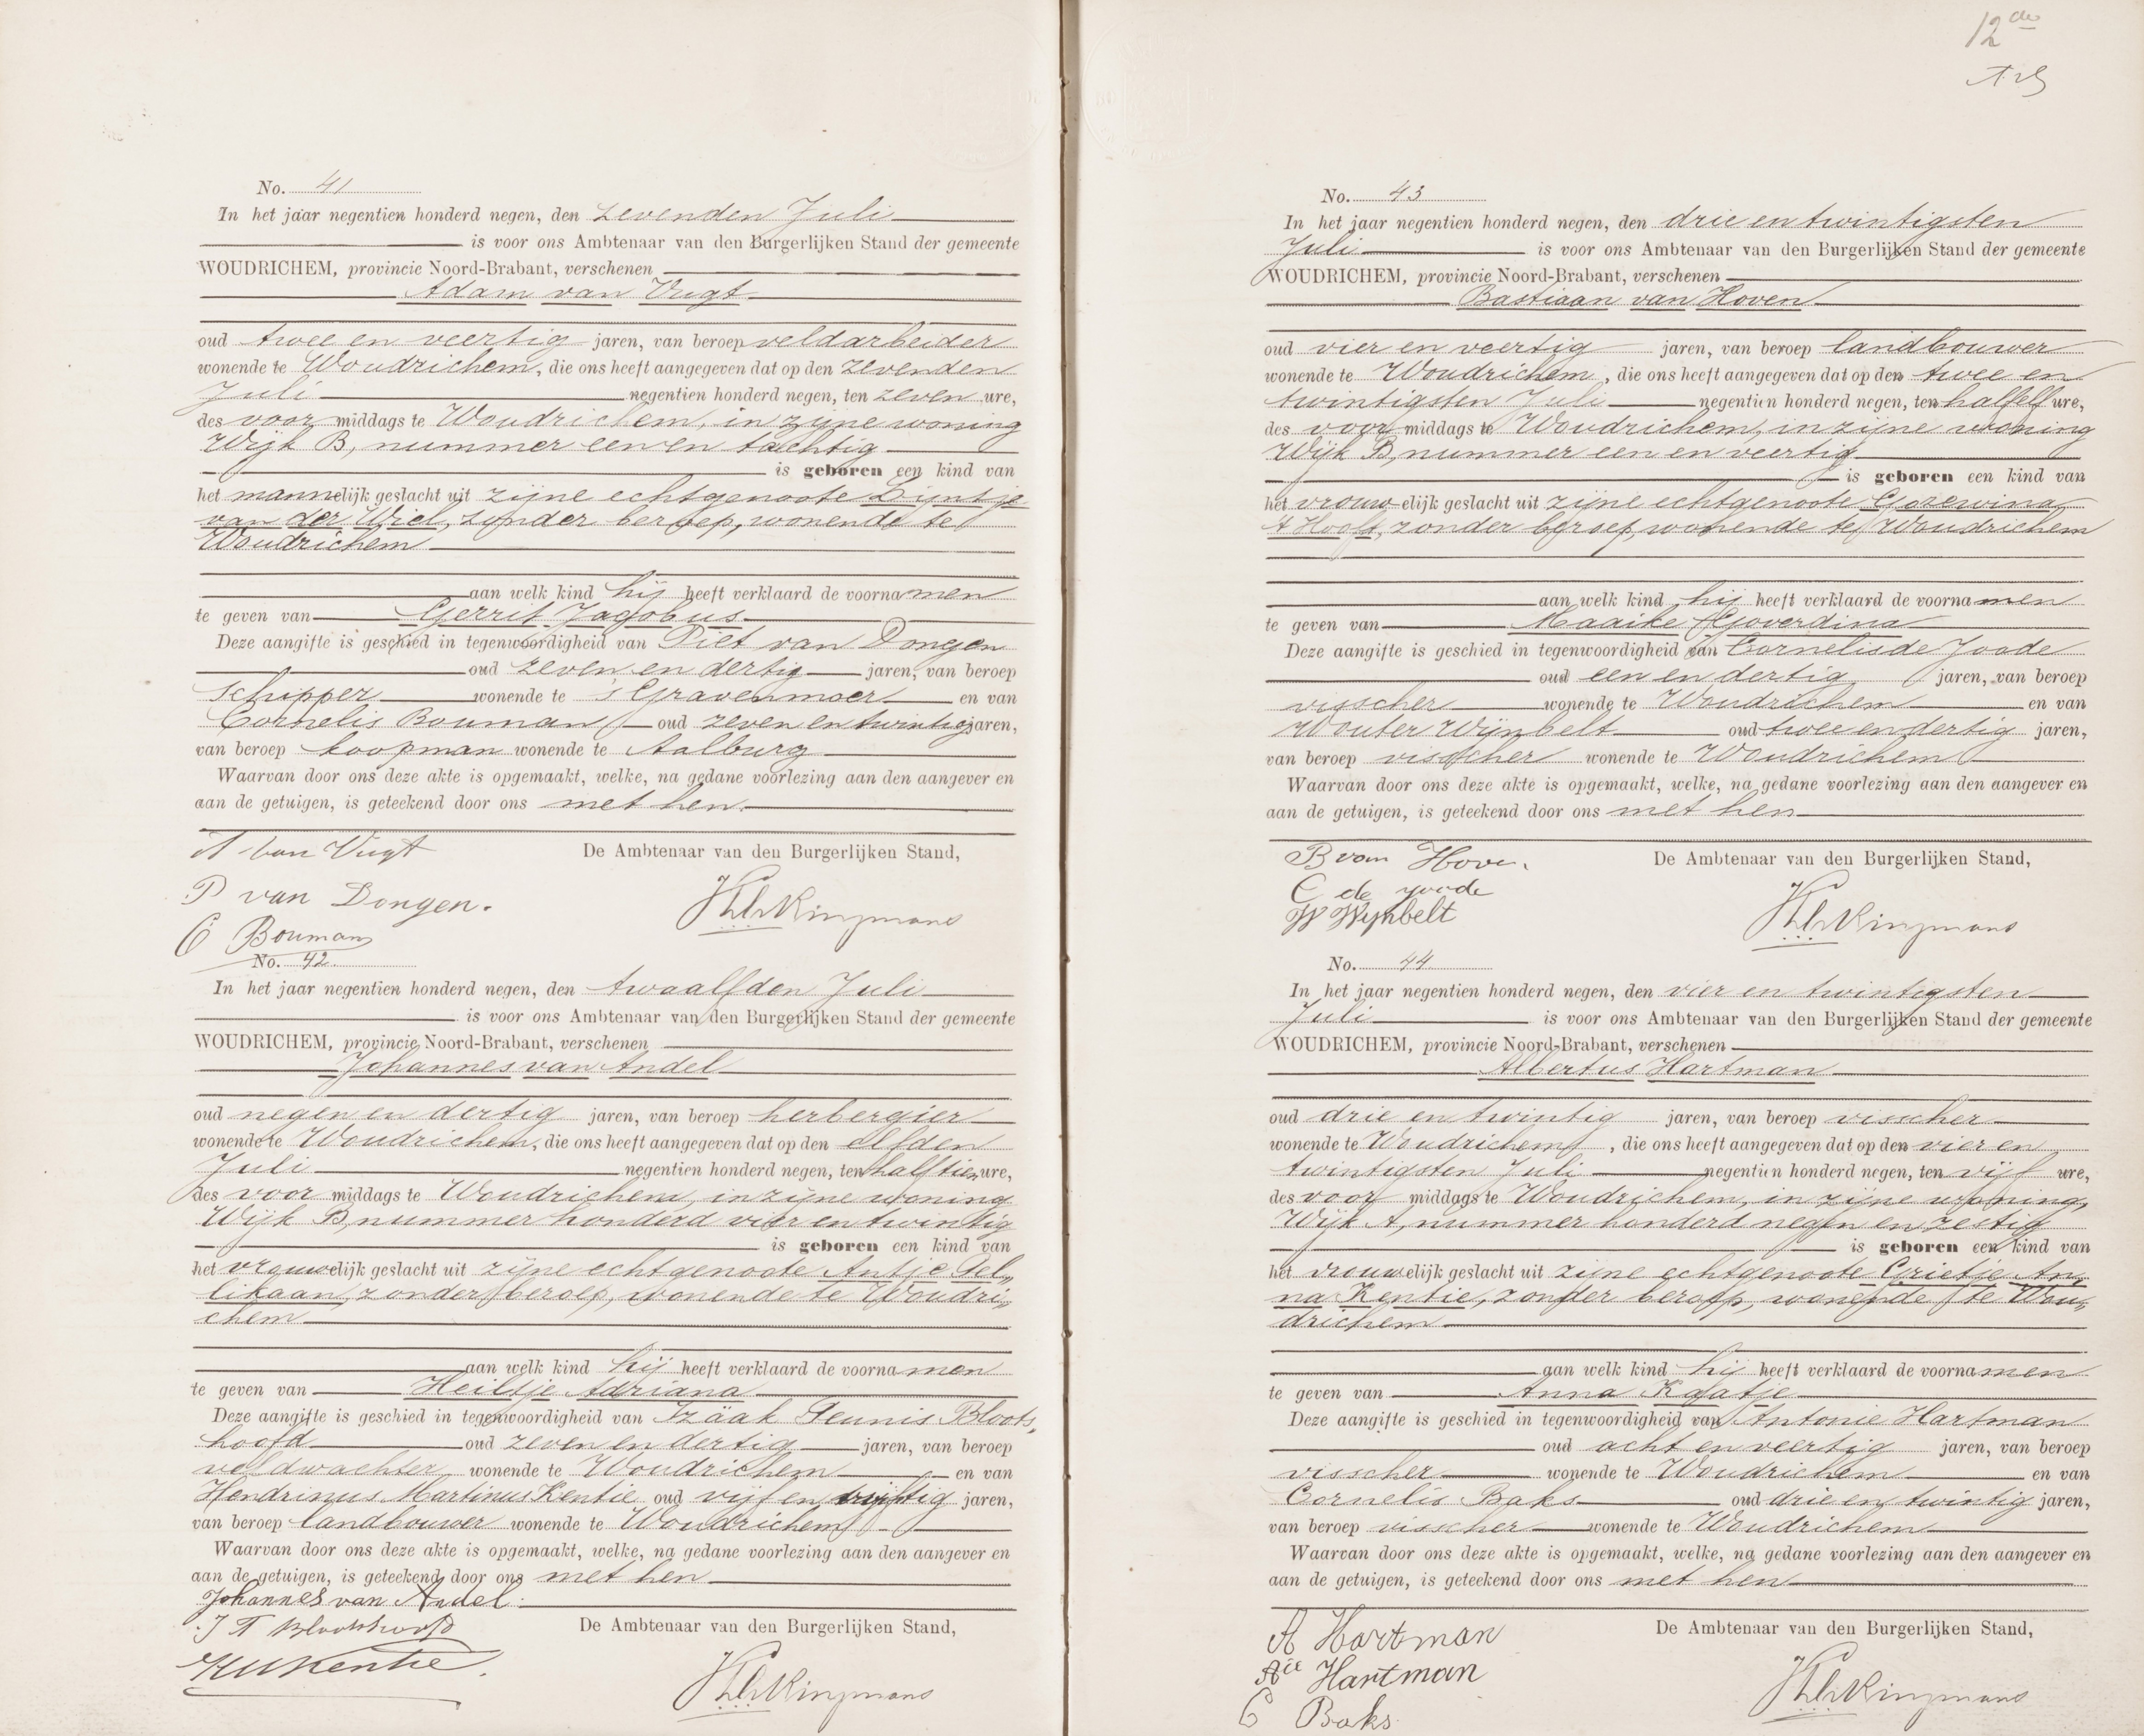 No. 41
In het jaar negentien honderd negen, den zevenden Juli
is voor ons Ambtenaar van den Burgerlijken Stand der gemeente
WOUDRICHEM, provincie Noord-Brabant, verschenen
Adam van Vugt
oud twee en veertig jaren, van beroep veldarbeider
wonende te Woudrichem, die ons heeft aangegeven dat op den zevenden
Juli negentien honderd negen, ten zeven ure,
des voor middags te Woudrichem, in zijne woning
Wijk B, nummer een en tachtig
is geboren een kind van
het mannelijk geslacht uit zijne echtgenoote Lijntje
van der Wiel, zonder beroep, wonende te
Woudrichem
aan welk kind hij heeft verklaard de voornamen
te geven van Gerrit Jagobus
Deze aangifte is geschied in tegenwoordigheid van Piet van Dongen
oud zeven en dertig jaren, van beroep
schipper wonende te 's Gravenmoer en van
Cornelis Bouman oud zeven en twintig jaren,
van beroep koopman wonende te Aalburg
Waarvan door ons deze akte is opgemaakt, welke, na gedane voorlezing aan den aangever en
aan de getuigen, is geteekend door ons met hen.
A van Vugt De Ambtenaar van den Burgerlijken Stand,
P van Dongen.
C Bouman
No. 42
In het jaar negentien honderd negen, den twaalfden Juli
is voor ons Ambtenaar van den Burgerlijken Stand der gemeente
WOUDRICHEM, provincie Noord-Brabant, verschenen
Johannes van Andel
oud negen en dertig jaren, van beroep herbergier
wonende te Woudrichem, die ons heeft aangegeven dat op den elfden
Juli negentien honderd negen, ten half tien ure,
des voor middags te Woudrichem, in zijne woning
Wijk B, nummer honderd vier en twintig
is geboren een kind van
het vrouwelijk geslacht uit zijne echtgenoote Antje Pel„
likaan, zonder beroep, wonende te Woudri„
chem
aan welk kind hij heeft verklaard de voornamen
te geven van Heiltje Adriana
Deze aangifte is geschied in tegenwoordigheid van Izäak Teunis Bloots„
hoofd oud zeven en dertig jaren, van beroep
veldwachter wonende te Woudrichem en van
Hendrinus Martinus Kentie oud vijf en vijftig jaren,
van beroep landbouwer wonende te Woudrichem
Waarvan door ons deze akte is opgemaakt, welke, na gedane voorlezing aan den aangever en
aan de getuigen, is geteekend door ons met hen
Johannes van Andel.
J T Blootshoofd De Ambtenaar van den Burgerlijken Stand,
HMKentie.
12de
No. 43
In het jaar negentien honderd negen, den drie en twintigsten
Juli is voor ons Ambtenaar van den Burgerlijken Stand der gemeente
WOUDRICHEM, provincie Noord-Brabant, verschenen
Bastiaan van Hoven
oud vier en veertig jaren, van beroep landbouwer
wonende te Woudrichem, die ons heeft aangegeven dat op den twee en
twintigsten Juli negentien honderd negen, ten half elf ure,
des voor middags te Woudrichem, in zijne woning
Wijk B, nummer een en veertig
is geboren een kind van
het vrouwelijk geslacht uit zijne echtgenoote Gozewina
't Hooft, zonder beroep, wonende te Woudrichem
aan welk kind hij heeft verklaard de voornamen
te geven van Maaike Goverdina
Deze aangifte is geschied in tegenwoordigheid van Cornelis de Joode
oud een en dertig jaren, van beroep
visscher wonende te Woudrichem en van
Wouter Wijnbelt oud twee en dertig jaren,
van beroep visscher wonende te Woudrichem
Waarvan door ons deze akte is opgemaakt, welke, na gedane voorlezing aan den aangever en
aan de getuigen, is geteekend door ons met hen
B van Hove. De Ambtenaar van den Burgerlijken Stand,
C de joode
W Wijnbelt
No. 44
In het jaar negentien honderd negen, den vier en twintigsten
Juli is voor ons Ambtenaar van den Burgerlijken Stand der gemeente
WOUDRICHEM, provincie Noord-Brabant, verschenen
Albertus Hartman
oud drie en twintig jaren, van beroep visscher
wonende te Woudrichem, die ons heeft aangegeven dat op den vier en
twintigsten Juli negentien honderd negen, ten vijf ure,
des voor middags te Woudrichem, in zijne woning,
Wijk A, nummer honderd negen en zestig
is geboren een kind van
het vrouwelijk geslacht uit zijne echtgenoote Grietje An„
na Kentie, zonder beroep, wonende te Wou„
drichem
aan welk kind hij heeft verklaard de voornamen
te geven van Anna Kaatje
Deze aangifte is geschied in tegenwoordigheid van Antonie Hartman
oud acht en veertig jaren, van beroep
visscher wonende te Woudrichem en van
Cornelis Baks oud drie en twintig jaren,
van beroep visscher wonende te Woudrichem
Waarvan door ons deze akte is opgemaakt, welke, na gedane voorlezing aan den aangever en
aan de getuigen, is geteekend door ons met hen
A Hartman De Ambtenaar van den Burgerlijken Stand,
Aie Hartman
C Baks